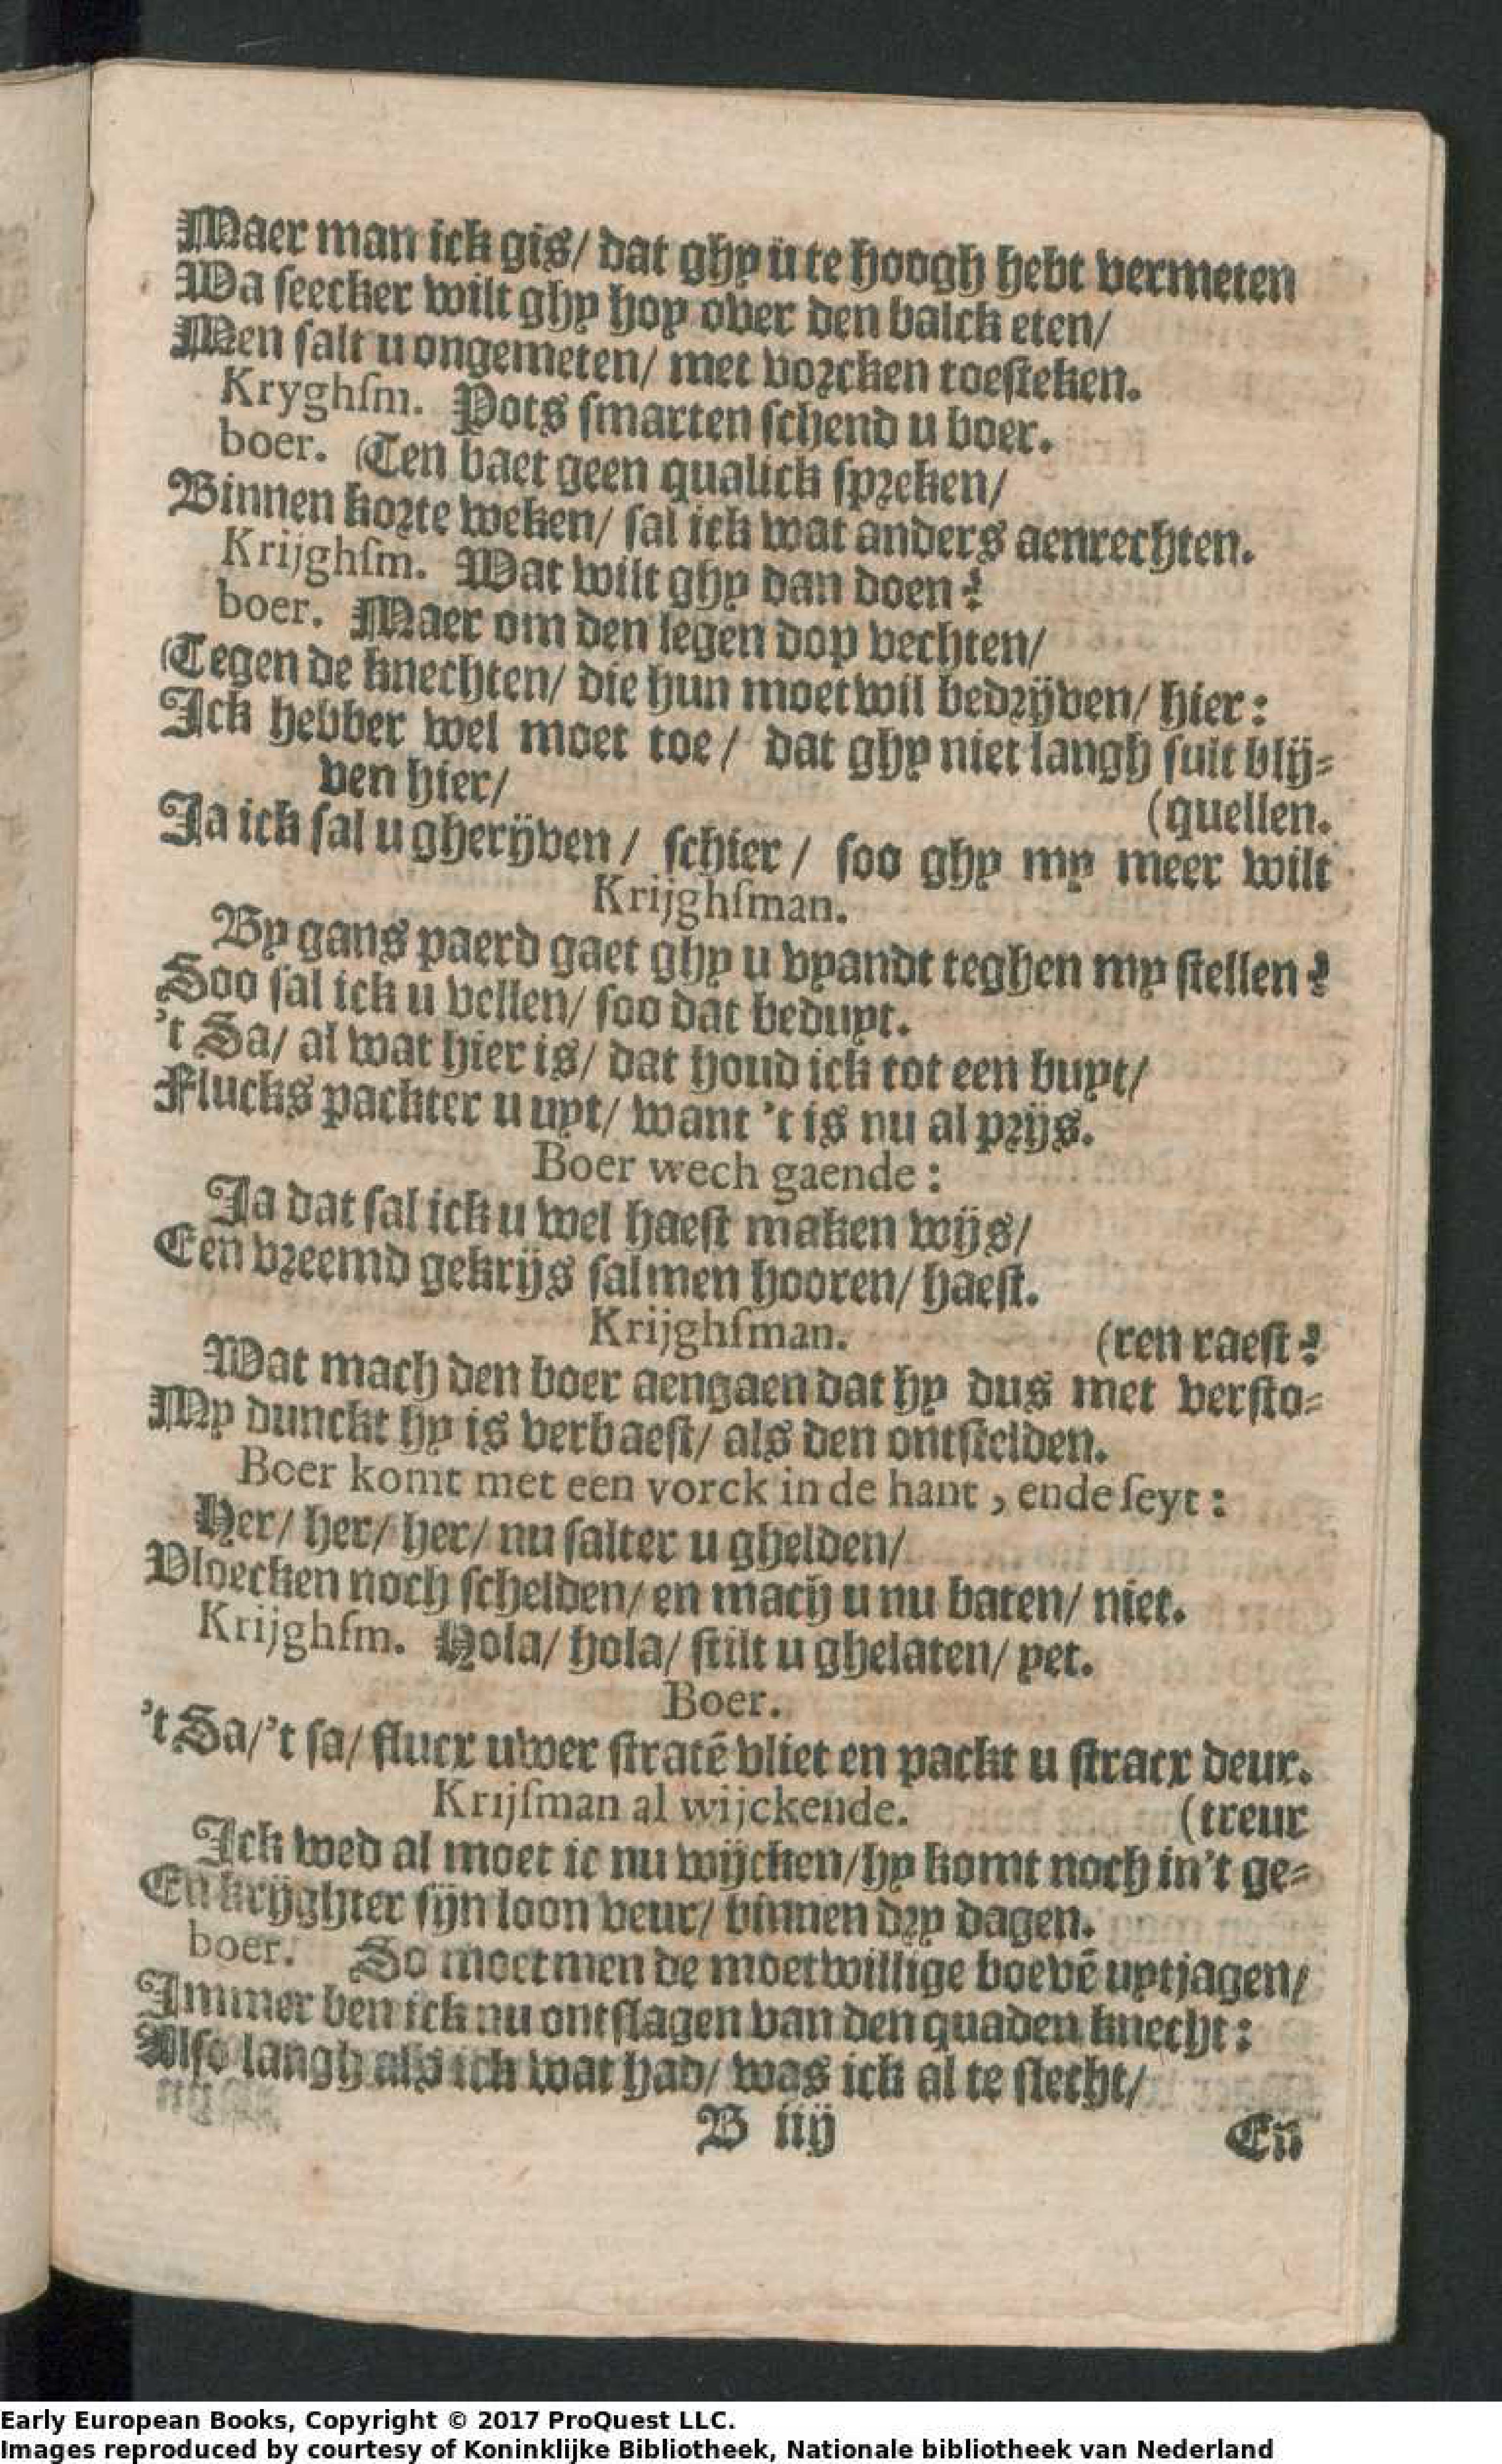 Maer man ick gis/ dat ghy ü te hoogh hebt vermeten
Wa seecker wilt ghy hoy over den balck eten/
Men salt u ongemeten/ met vorcken toesteken.
Kryghſm. Pots smarten schend u boer.
boer. Ten baet geen qualick spreken/
Binnen korte weken/ sal ick wat anders aenrechten.
Krijghſm. Wat wilt ghy dan doen?
boer. Maer om den legen dop vechten/
Tegen de knechten/ die hun moetwil bedrijven/ hier:
Ick hebber wel moet toe/ dat ghy niet langh sult blij-
ven hier/
(quellen.
Ja ick sal u gherijven/ schier/ soo ghy my meer wilt
Krijghſman.
By gans paerd gaet ghy u vyandt teghen my stellen?
Soo sal ick u vellen/ soo dat beduyt.
't Sa/ al wat hier is/ dat houd ick tot een buyt/
Flucks packter u uyt/ want 't is nu al prijs.
Boer wech gaende:
Ja dat sal ick u wel haest maken wijs/
Een vreemd gekrijs salmen hooren/ haest.
Krijghſman.
(ren raest?
Wat mach den boer aengaen dat hy dus met versto-
My dunckt hy is verbaest/ als den ontstelden.
Boer komt met een vorck in de hant, ende ſeyt:
Her/ her/ her/ nu salter u ghelden/
Vloecken noch schelden/ en mach u nu baten/ niet.
Krijghſm. Hola/ hola/ stilt u ghelaten/ yet.
Boer.
't Sa/'t sa/ flucx uwer stratē vliet en packt u stracx deur.
Krijſman al wijckende.
(treur
Ick wed al moet ic nu wijcken/hy komt noch in't ge-
En krijghter sijn loon veur/ binnen dry dagen.
boer. So moetmen de moetwillige boevē uytjagen/
Immer ben ick nu ontslagen van den quaden knecht:
Also langh als ick wat had/ was ick al te slecht/
B iiij
Eñ
Early European Books, Copyright © 2017 ProQuest LLC.
Images reproduced by courtesy of Koninklijke Bibliotheek, Nationale bibliotheek van Nederland